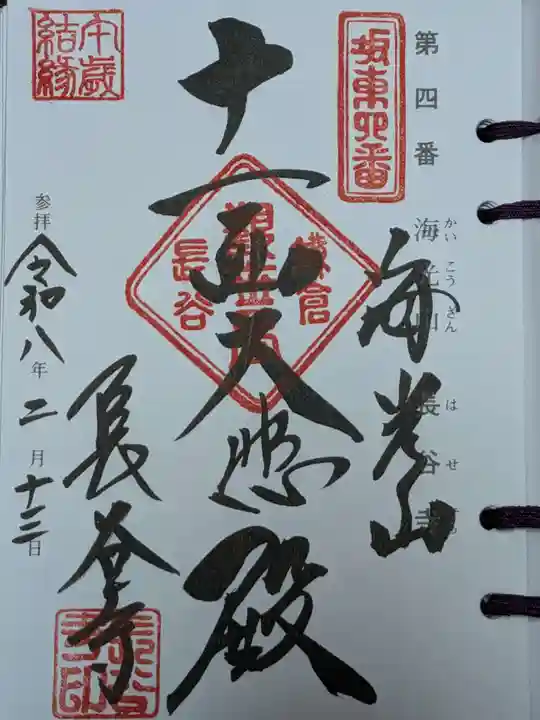 第四番 海光山 長谷寺
かいこうざん はせ
坂東四番
海光山
十一面大悲殿
鎌倉
長谷
千歳結縁
長谷寺
参拝 令和八年二月十三日